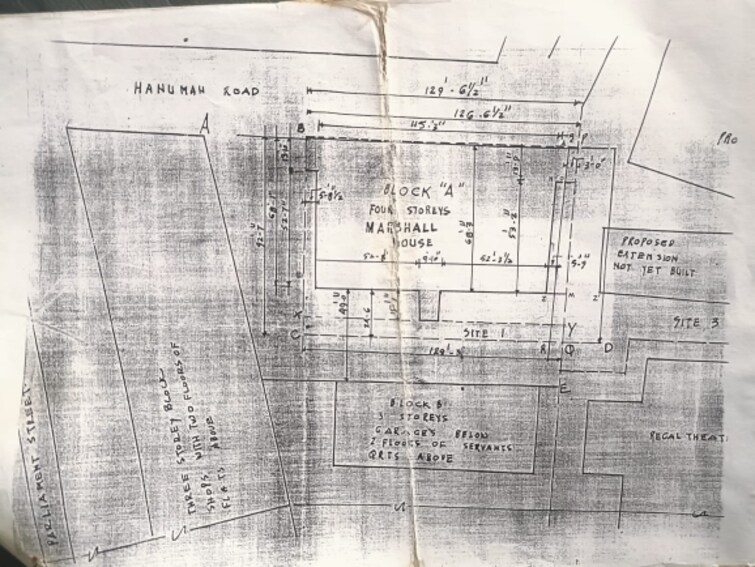 HANUMAN ROAD
129'-6½"
126.6½"
115'.2"
A
B
P
BLOCK "A"
FOUR STOREYS
MARSHALL
HOUSE
5'-8½"
3'-0"
PRO
PROPOSED
EXTENSION
NOT YET BUILT
52-8
9-10
52'-3½"
5-9
68-3
53-2
24.6
X
Y
C
SITE 1
R
Q
D
SITE 3
E
BLOCK B.
3 STOREYS
GARAGES BELOW
2 FLOORS OF SERVANTS
QRTS ABOVE
REGAL THEAT
THREE STOREY BLOCK
SHOPS WITH TWO FLOORS OF
FLATS ABOVE
PARLIAMENT STREET